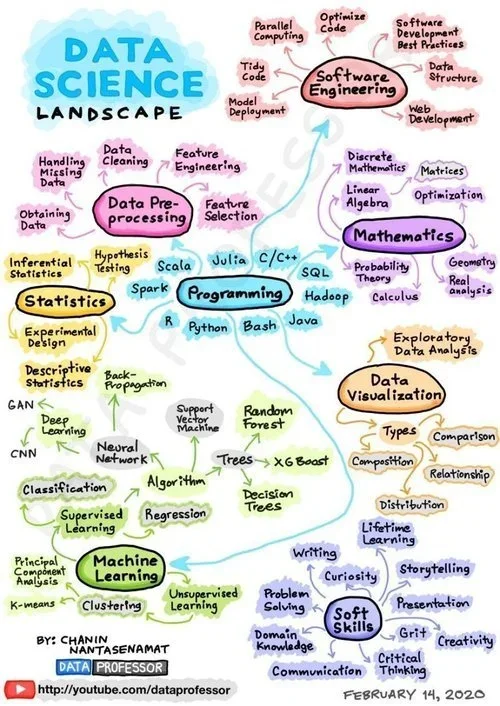 DATA
SCIENCE
LANDSCAPE
Parallel
Computing
Optimize
Code
Software
Development
Best Practices
Tidy
Code
Software
Engineering
Data
Structure
Model
Deployment
Web
Development
Handling
Missing
Data
Data
Cleaning
Feature
Engineering
Data Pre-
processing
Feature
Selection
Obtaining
Data
Discrete
Mathematics
Matrices
Linear
Algebra
Optimization
Mathematics
Probability
Theory
Calculus
Geometry
Real
analysis
Inferential
Statistics
Hypothesis
Testing
Statistics
Experimental
Design
Descriptive
Statistics
Scala
Julia
C/C++
SQL
Spark
Programming
Hadoop
R
Python
Bash
Java
Exploratory
Data Analysis
Data
Visualization
Types
Comparison
Composition
Relationship
Distribution
Back-
Propagation
GAN
Deep
Learning
CNN
Neural
Network
Support
Vector
Machine
Random
Forest
Trees
XG Boost
Decision
Trees
Algorithm
Classification
Supervised
Learning
Regression
Principal
Component
Analysis
Machine
Learning
K-means
Clustering
Unsupervised
Learning
Lifetime
Learning
Writing
Curiosity
Storytelling
Problem
Solving
Presentation
Soft
Skills
Domain
Knowledge
Grit
Creativity
Communication
Critical
Thinking
BY: CHANIN
NANTASENAMAT
DATA PROFESSOR
http://youtube.com/dataprofessor
FEBRUARY 14, 2020